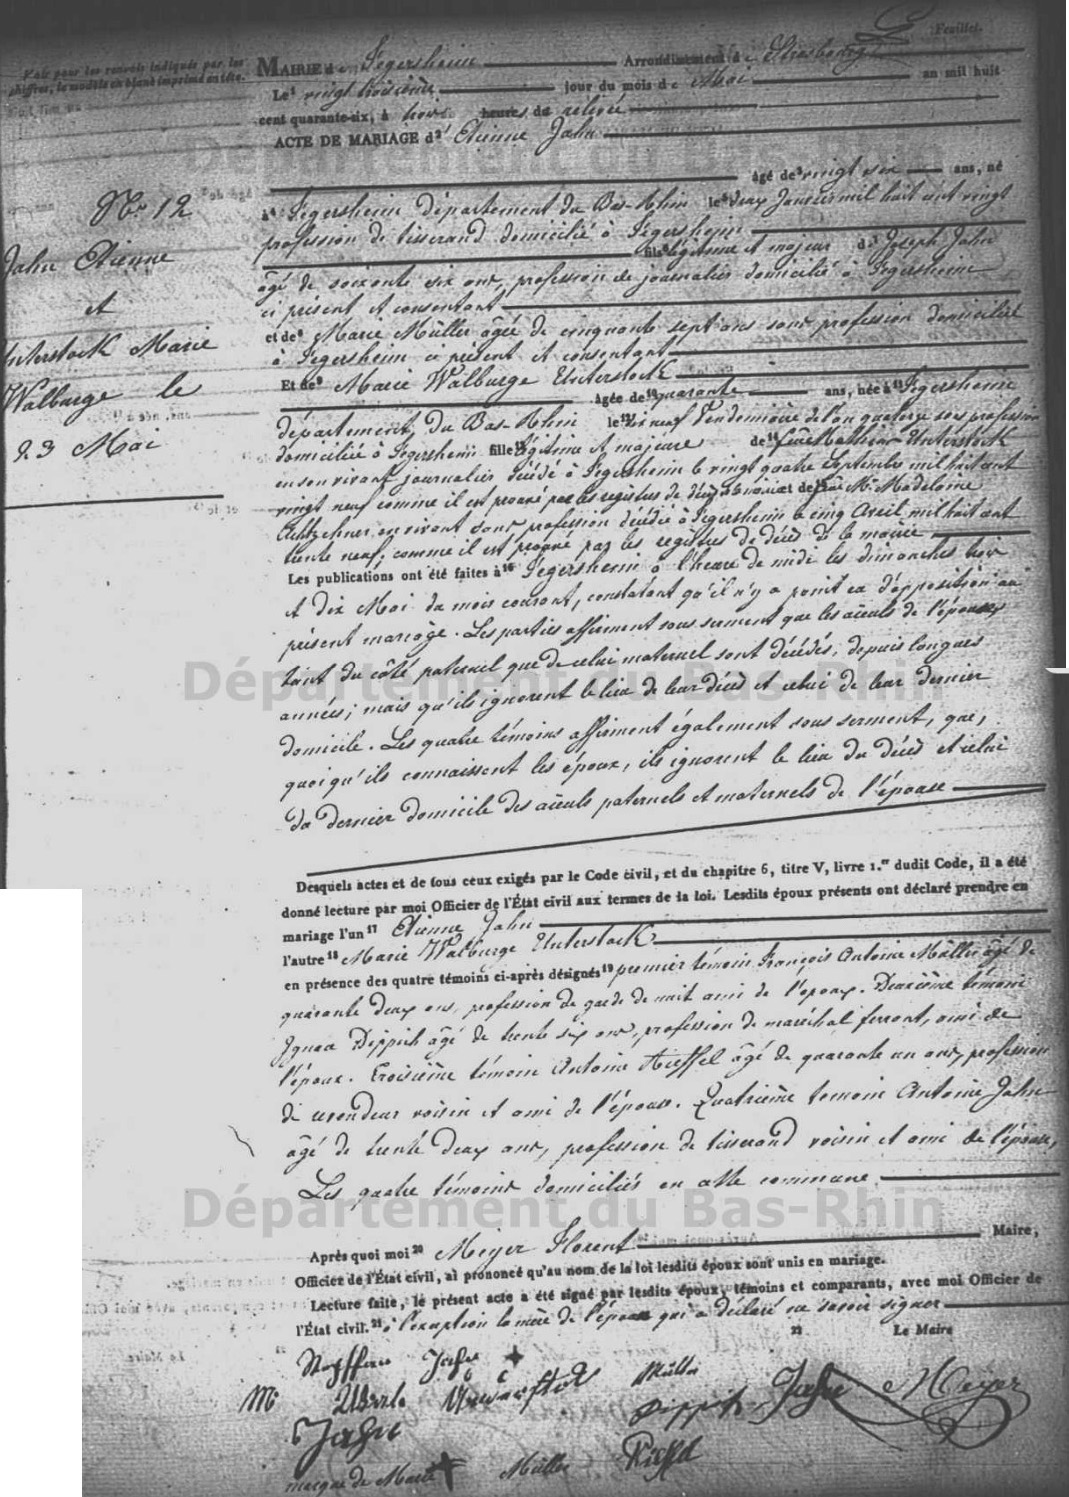 Feuillet.
Voir pour les renvois indiqués par les
chiffres, le modèle en blanc imprimé en tête.
MAIRIE d e Fegersheim Arrondissement d e Strasbourg
Le¹ vingt troisième jour du mois de Mai an mil huit
cent quarante-six, à trois heures de relevée
ACTE DE MARIAGE d²' Etienne Jahn
âgé de³ vingt six ans, né
à⁴ Fegersheim département du Bas-Rhin le⁵ deux Janvier mil huit cent vingt
profession de tisserand domicilié à Fegersheim
fils⁶ légitime et majeur de⁷ Joseph Jahn
âgé de soixante six ans, profession de journalier domicilié à Fegersheim
ci présent et consentant
et de⁸ Marie Müller âgée de cinquante sept ans sans profession domiciliée
à Fegersheim ci présent et consentant
Et de⁹ Marie Walburge Unterstock
âgée de¹⁰ quarante ans, née à¹¹ Fegersheim
département du Bas-Rhin le¹² dix neuf Vendemiaire de l'an quatorze sans profession
domiciliée à Fegersheim fille¹³ légitime et majeure de¹⁴ feu Mathieu Unterstock
en son vivant journalier décédé à Fegersheim le vingt quatre Septembre mil huit cent
vingt neuf comme il est prouvé par les registres de décès de la mairie et de¹⁵ feue Mie Madeleine
Achtzehner en vivant sans profession décédée à Fegersheim le cinq Avril mil huit cent
trente neuf, comme il est prouvé par les registres de décès de la mairie
Les publications ont été faites à¹⁶ Fegersheim à l'heure de midi les dimanches trois
et dix Mai du mois courant, constatant qu'il n'y a point eu d'opposition au
présent mariage. Les parties affirment sous serment que les aïeuls de l'épouse
tant du côté paternel que de celui maternel sont décédés, depuis longues
années; mais qu'ils ignorent le lieu de leur décès et celui de leur dernier
domicile. Les quatre témoins affirment également sous serment, que,
quoiqu'ils connaissent les époux, ils ignorent le lieu du décès et celui
du dernier domicile des aïeuls paternels et maternels de l'épouse
Desquels actes et de tous ceux exigés par le Code civil, et du chapitre 6, titre V, livre 1.er dudit Code, il a été
donné lecture par moi Officier de l'État civil aux termes de la loi. Lesdits époux présents ont déclaré prendre en
mariage l'un¹⁷ Etienne Jahn
l'autre¹⁸ Marie Walburge Unterstock
en présence des quatre témoins ci-après désignés¹⁹ premier témoin François Antoine Müller âgé de
quarante deux ans, profession de garde de nuit ami de l'époux. Deuxième témoin
Ignace Dippich âgé de trente six ans, profession de maréchal ferrant, ami de
l'époux. Troisième témoin Antoine Kieffel âgé de quarante un ans, profession
de voisin et ami de l'épouse. Quatrième temoin Antoine Jahn
âgé de trente deux ans, profession de tisserand voisin et ami de l'épouse,
Les quatre témoins domiciliés en cette commune.
Après quoi moi²⁰ Meyer Florent Maire,
Officier de l'État civil, ai prononcé qu'au nom de la loi lesdits époux sont unis en mariage.
Lecture faite, le présent acte a été signé par lesdits époux, témoins et comparants, avec moi Officier de
l'État civil.²¹ à l'exception la mère de l'époux qui a déclaré ne savoir signer
²² Le Maire
Jahn Müller
Mi Jahn Meyer
Jahn
marque de Marie Müller
No 12
Jahn Etienne
et
Unterstock Marie
Walburge le
23 Mai
Département du Bas-Rhin
Département du Bas-Rhin
Département du Bas-Rhin